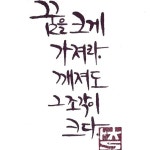 꿈을 크게
가져라.
깨져도
그 조각이
크다.